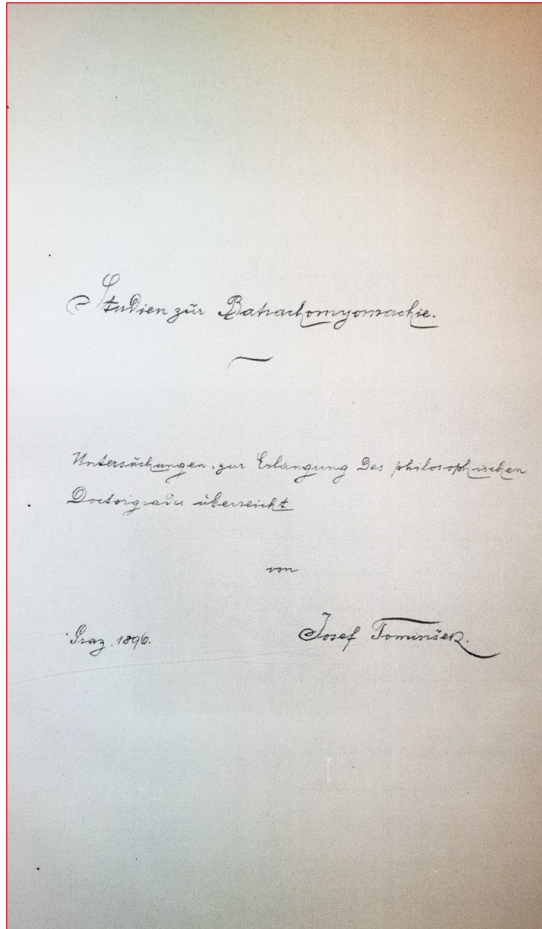 Studien zur Batrachomyomachie.
Untersuchungen, zur Erlangung des philosophischen
Doctorgrades überreicht
von
Graz, 1896. Josef Tominšek.